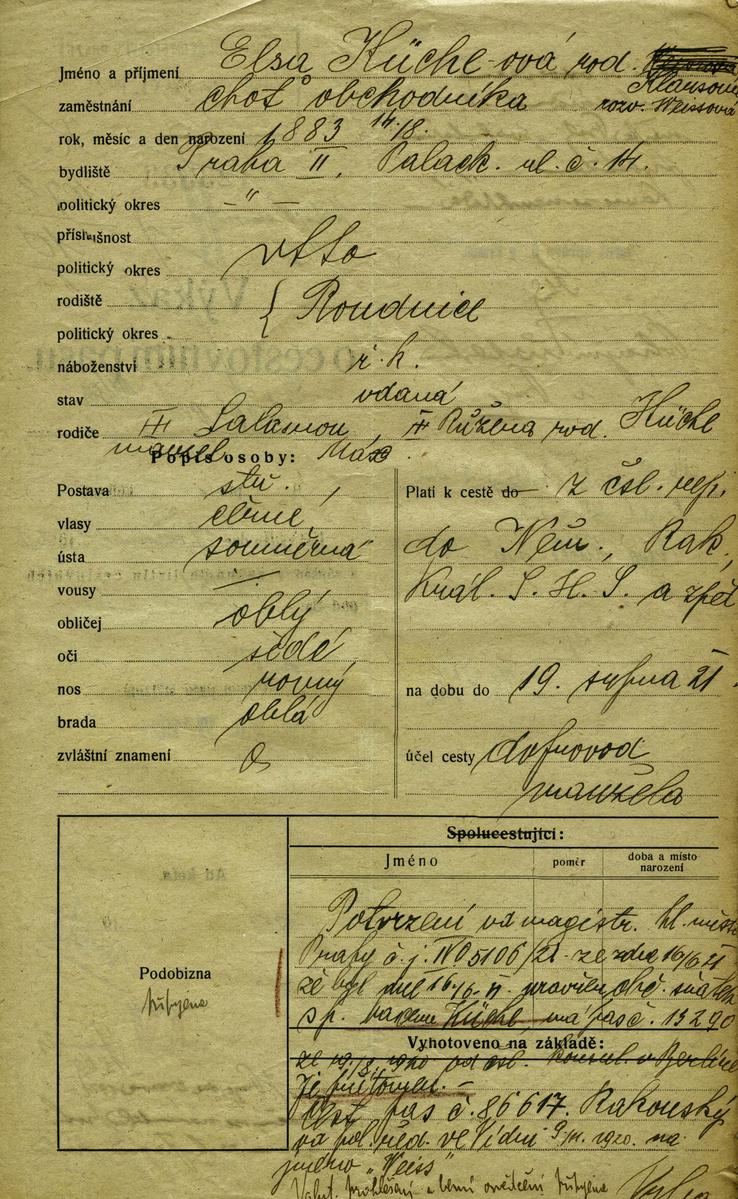 Jméno a příjmení Elsa Küchl-ová rod.
Klausová
zaměstnání choť obchodníka rozv. Weissová
rok, měsíc a den narození 1883 14/8.
bydliště Praha II, Palack. ul. č. 14.
politický okres — " —
příslušnost
politický okres
rodiště { Roudnice
politický okres
náboženství ř. k.
stav vdaná
rodiče Salamon Růžena rod. Küchl
manžel Max.
Popis osoby:
Postava stř.,
vlasy černé,
ústa souměrná
vousy ·/·
obličej oblý
oči šedé,
nos rovný
brada oblá
zvláštní znamení 0
Platí k cestě do z čsl. rep.
do Něm., Rak,
Král. S. H. S. a zpět
na dobu do 19. srpna 21.
účel cesty doprovod
manžela
Spolucestující:
Jméno poměr doba a místo narození
Potvrzení od magistr. hl. města
Prahy č. j. IV 05106/21 ze dne 16/6 21
že byl dne 16./6. 21 proveden obč. sňatek
s p. Küchl, má pas č. 13290
Vyhotoveno na základě:
ze 19/8 1920 od čsl. konsul. v Berlíně
Je přítomen. —
pas č. 86617. Rakouský
od pol. řed. ve Vídni 1920 na
jméno „Weiss"
Podobizna